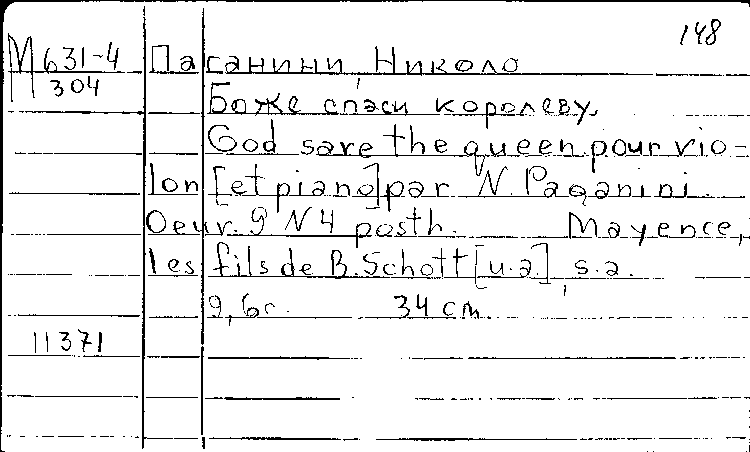 148
М 631-4 Паганини, Николо
П 304
Боже, спаси королеву.
God save the queen pour vio-
lon [et piano] par N. Paganini.
Oeuv. 9 N 4 posth. Mayence,
les fils de B. Schott [u.a.], s.a.
9, 6 с. 34 cm.
11371